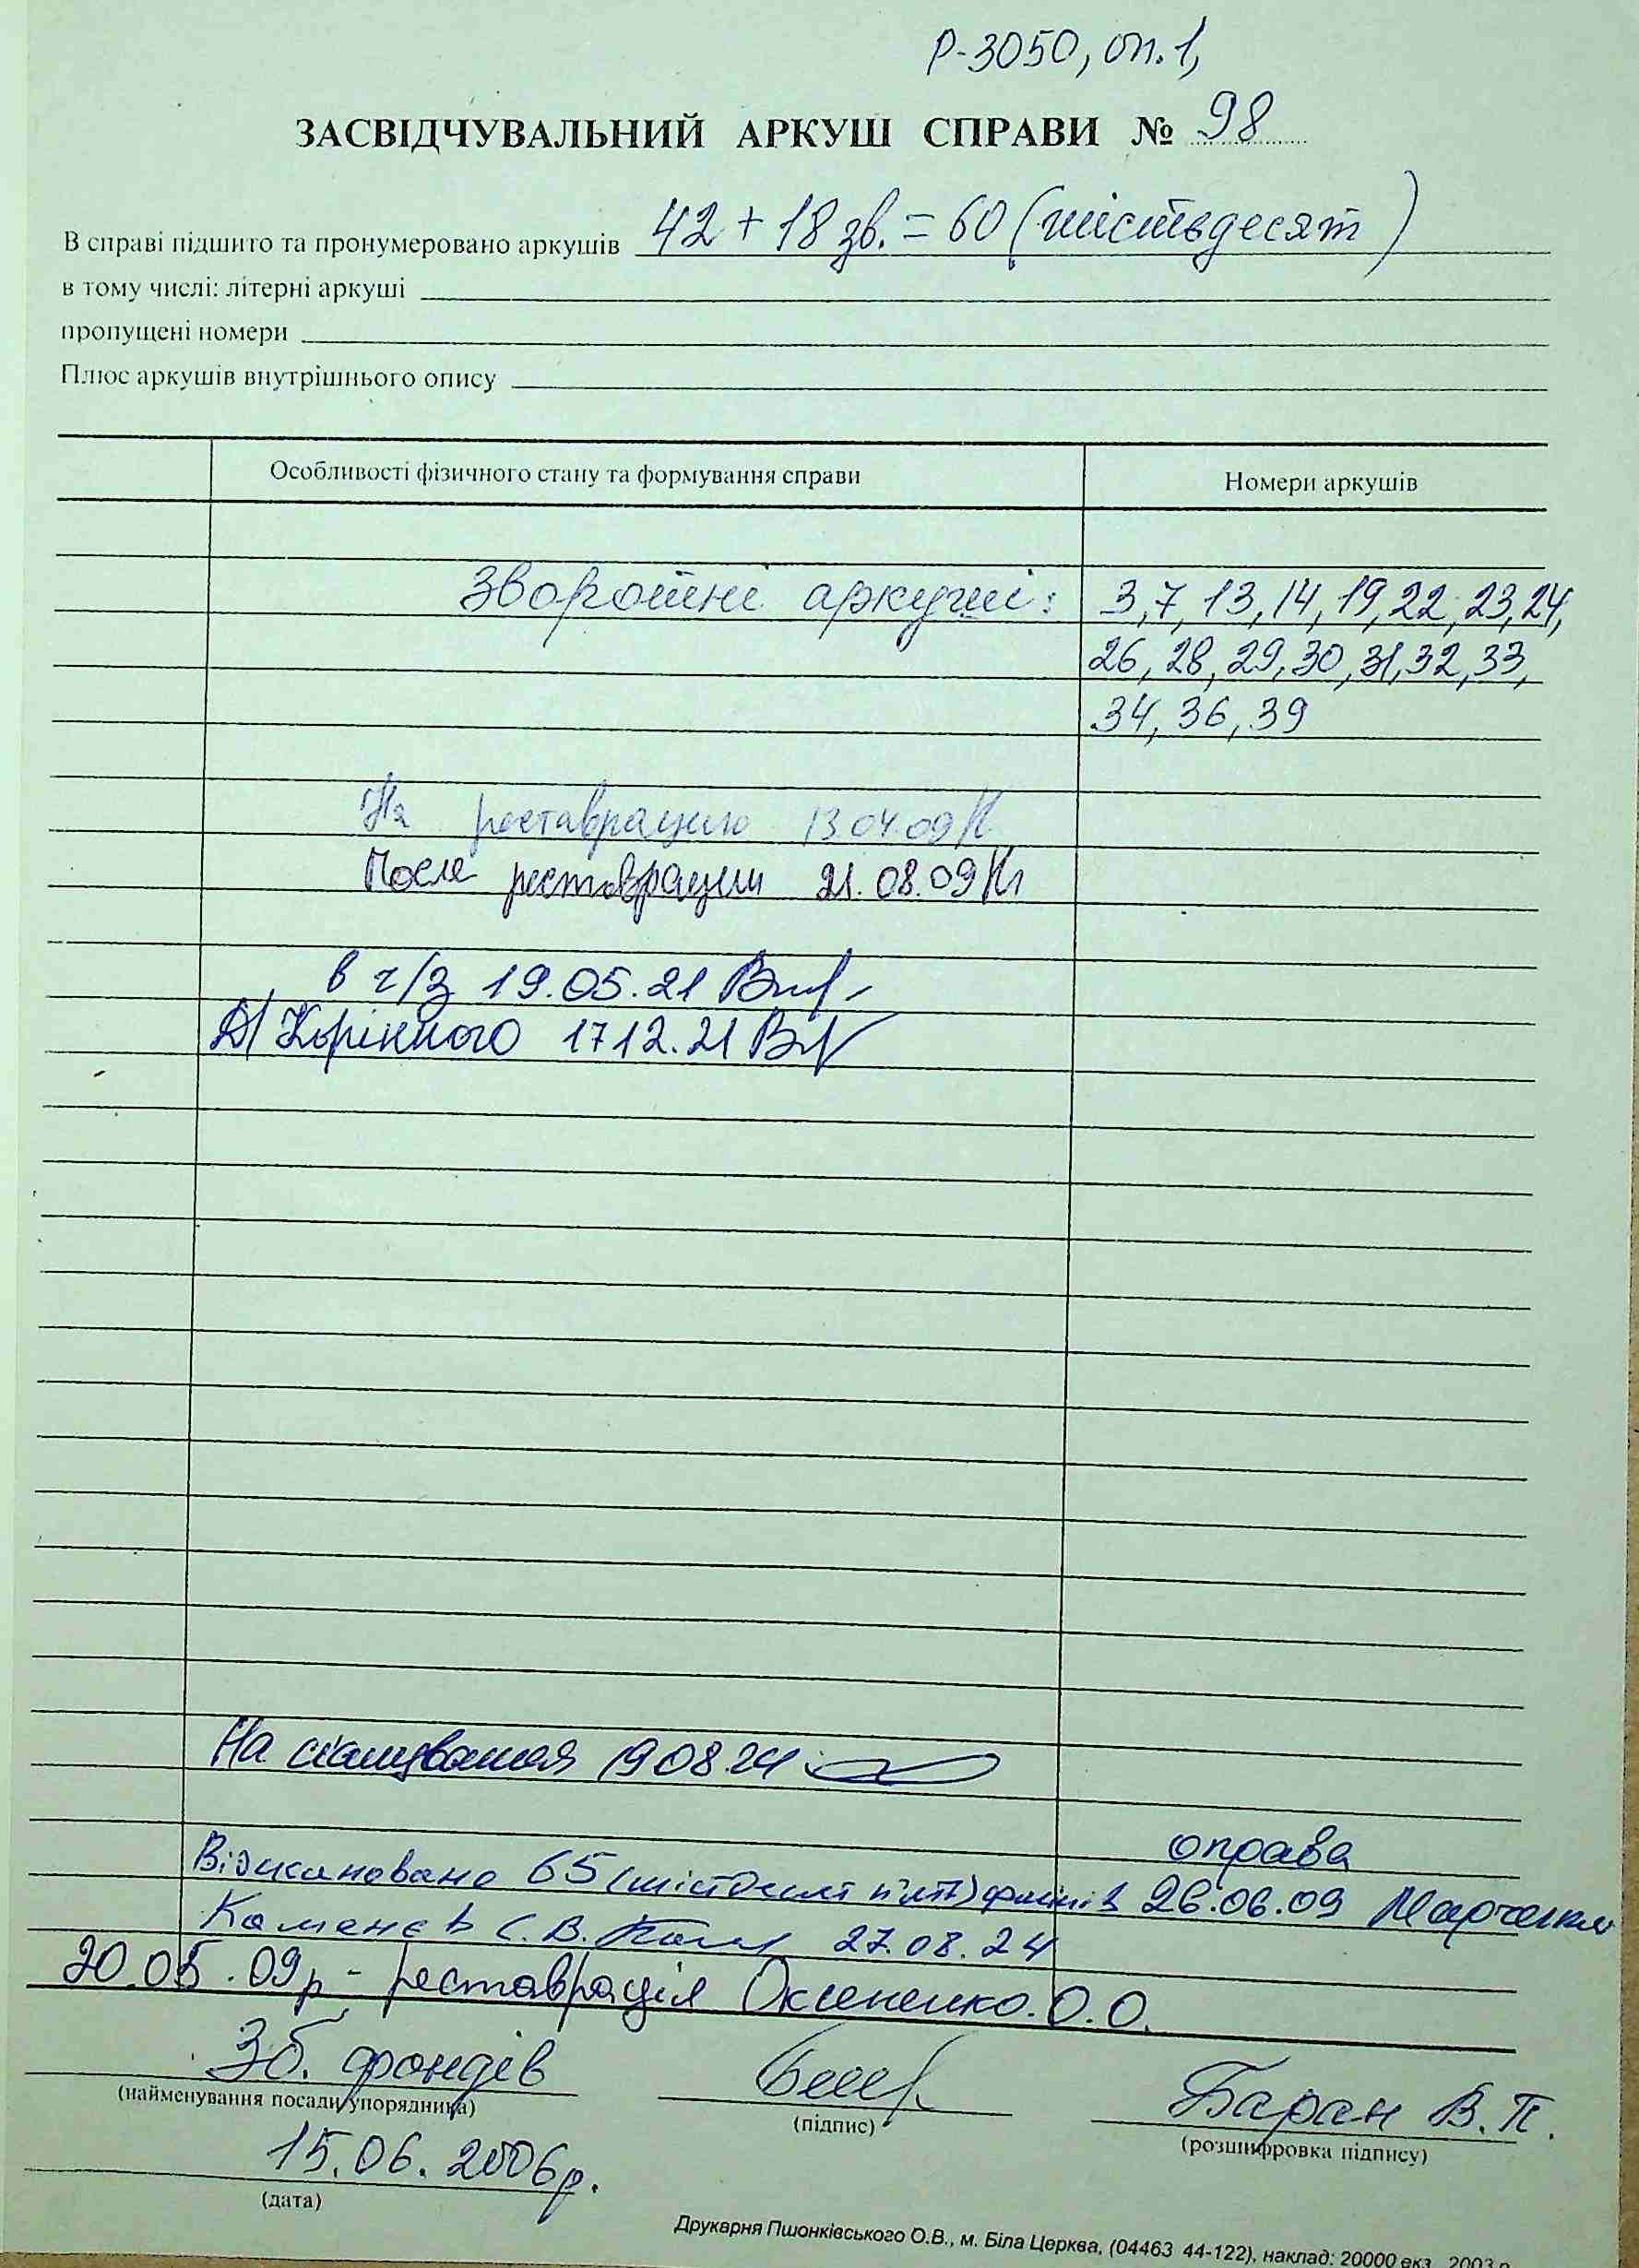 Р-3050, оп.1,
ЗАСВІДЧУВАЛЬНИЙ АРКУШ СПРАВИ № 98
В справі підшито та пронумеровано аркушів 42 + 18 зв. = 60 (шістьдесят)
в тому числі: літерні аркуші
пропущені номери
Плюс аркушів внутрішнього опису
Особливості фізичного стану та формування справи Номери аркушів
Зворотні аркуші: 3, 7, 13, 14, 19, 22, 23, 24,
26, 28, 29, 30, 31, 32, 33,
34, 36, 39
На реставрацию 13.04.09
После реставрации 21.08.09
в ч/з 19.05.21
Д/ Корінного 17 12.21
На сканування 19 08 24
оправа
Відскановано 65 (шістдесят п'ять) файлів 26.06.09 Марченко
Каменєв С.В. 27.08.24
20.05.09р - реставрація Оксененко.О.О.
Зб. фондів Баран В.П.
(найменування посади упорядника) (підпис) (розшифровка підпису)
15.06.2006р.
(дата)
Друкарня Пшонківського О.В., м. Біла Церква, (04463 44-122), наклад: 20000 екз. 2003 р.